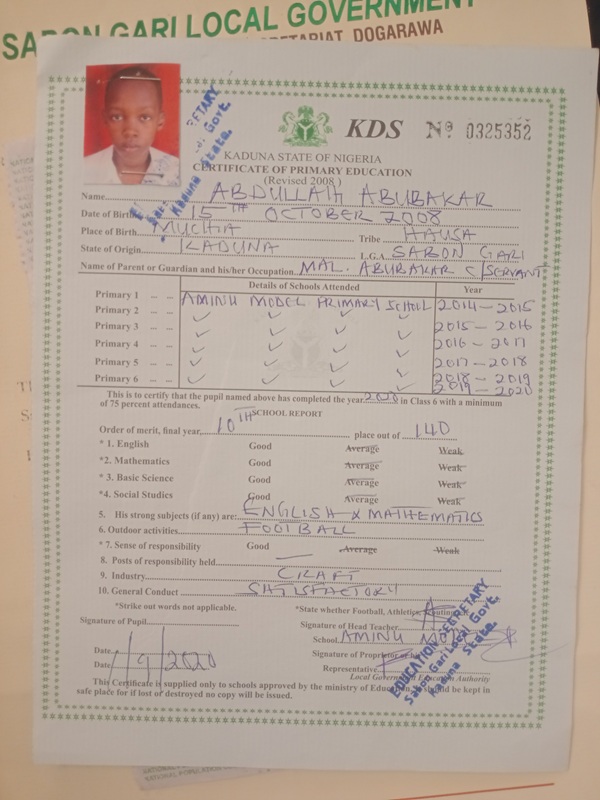 SABON GARI LOCAL GOVERNMENT
SECRETARIAT DOGARAWA
KDS No 0325352
KADUNA STATE OF NIGERIA
CERTIFICATE OF PRIMARY EDUCATION
(Revised 2008)
Name ABDULLAHI ABUBAKAR
Date of Birth 15TH OCTOBER 2008
Place of Birth MUCHIA Tribe HAUSA
State of Origin KADUNA L.G.A. SABON GARI
Name of Parent or Guardian and his/her Occupation MAL. ABUBAKAR C/SERVANT
Details of Schools Attended Year
Primary 1 AMINU MODEL PRIMARY SCHOOL 2014-2015
Primary 2 2015-2016
Primary 3 2016-2017
Primary 4 2017-2018
Primary 5 2018-2019
Primary 6 2019-2020
This is to certify that the pupil named above has completed the year 2020 in Class 6 with a minimum
of 75 percent attendances.
SCHOOL REPORT
Order of merit, final year, 10TH place out of 140
* 1. English Good Average Weak
*2. Mathematics Good Average Weak
* 3. Basic Science Good Average Weak
*4. Social Studies Good Average Weak
5. His strong subjects (if any) are: ENGLISH & MATHEMATICS
6. Outdoor activities FOOTBALL
* 7. Sense of responsibility Good Average Weak
8. Posts of responsibility held
9. Industry CRAFT
10. General Conduct SATISFACTORY
*Strike out words not applicable. *State whether Football, Athletics,
Signature of Pupil Signature of Head Teacher
School AMINU MODEL
Date Signature of Proprietor
Date 1/9/2020 Representative
Local Government Education Authority
This Certificate is supplied only to schools approved by the ministry of Education. It should be kept in
safe place for if lost or destroyed no copy will be issued.
EDUCATION SECRETARY
Sabon Gari Local Govt.
Kaduna State.